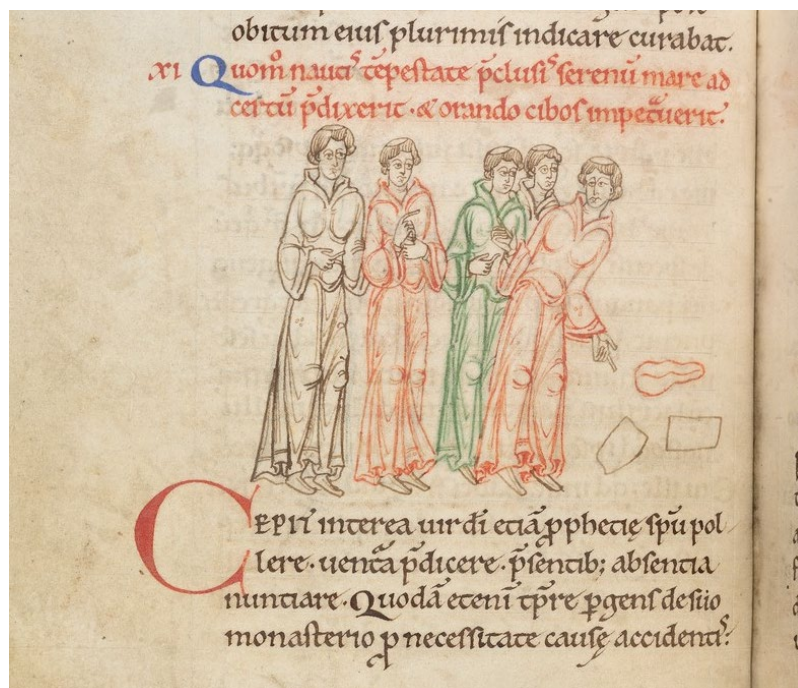 obitum eius plurimis indicare curabat.
xi Quom̄ nautis tēpestate p̄clusis serenū mare ad
certū p̄dixerit · & orando cibos impetᵃuerit.
CEPIT interea uir dī etiā ꝓphetię spū pol
lere · uentᵃā p̄dicere · p̄sentib; absentia
nuntiare · Quodā etenī tp̄re ꝑgens de suo
monasterio ꝓ necessitate causę accidentis: